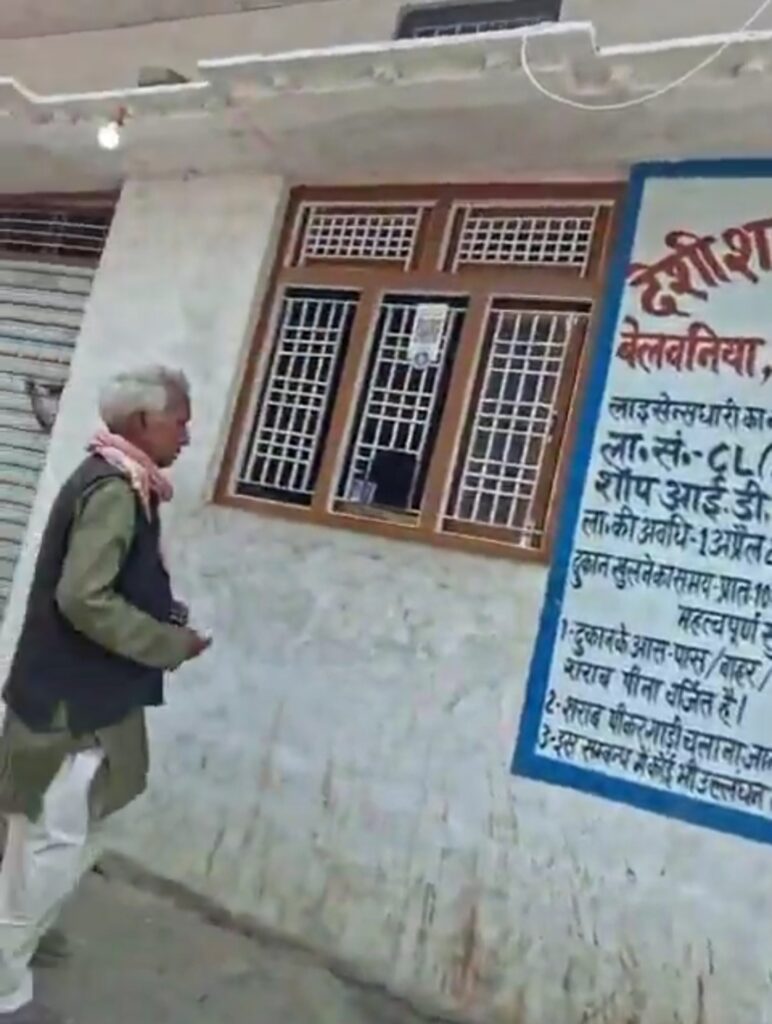 देशी श
बेलवनिया,
लाइसेन्सधारी का
ला॰ सं॰-CL(
शॉप आई.डी.
ला॰की अवधि-1 अप्रैल
दुकान खुलने का समय-प्रातः10
महत्वपूर्ण सु
1-दुकान के आस-पास/बाहर/
शराब पीना वर्जित है।
2-शराब पीकर गाड़ी चलाना, जान
3-इस सम्बन्ध में कोई भी उल्लंघन